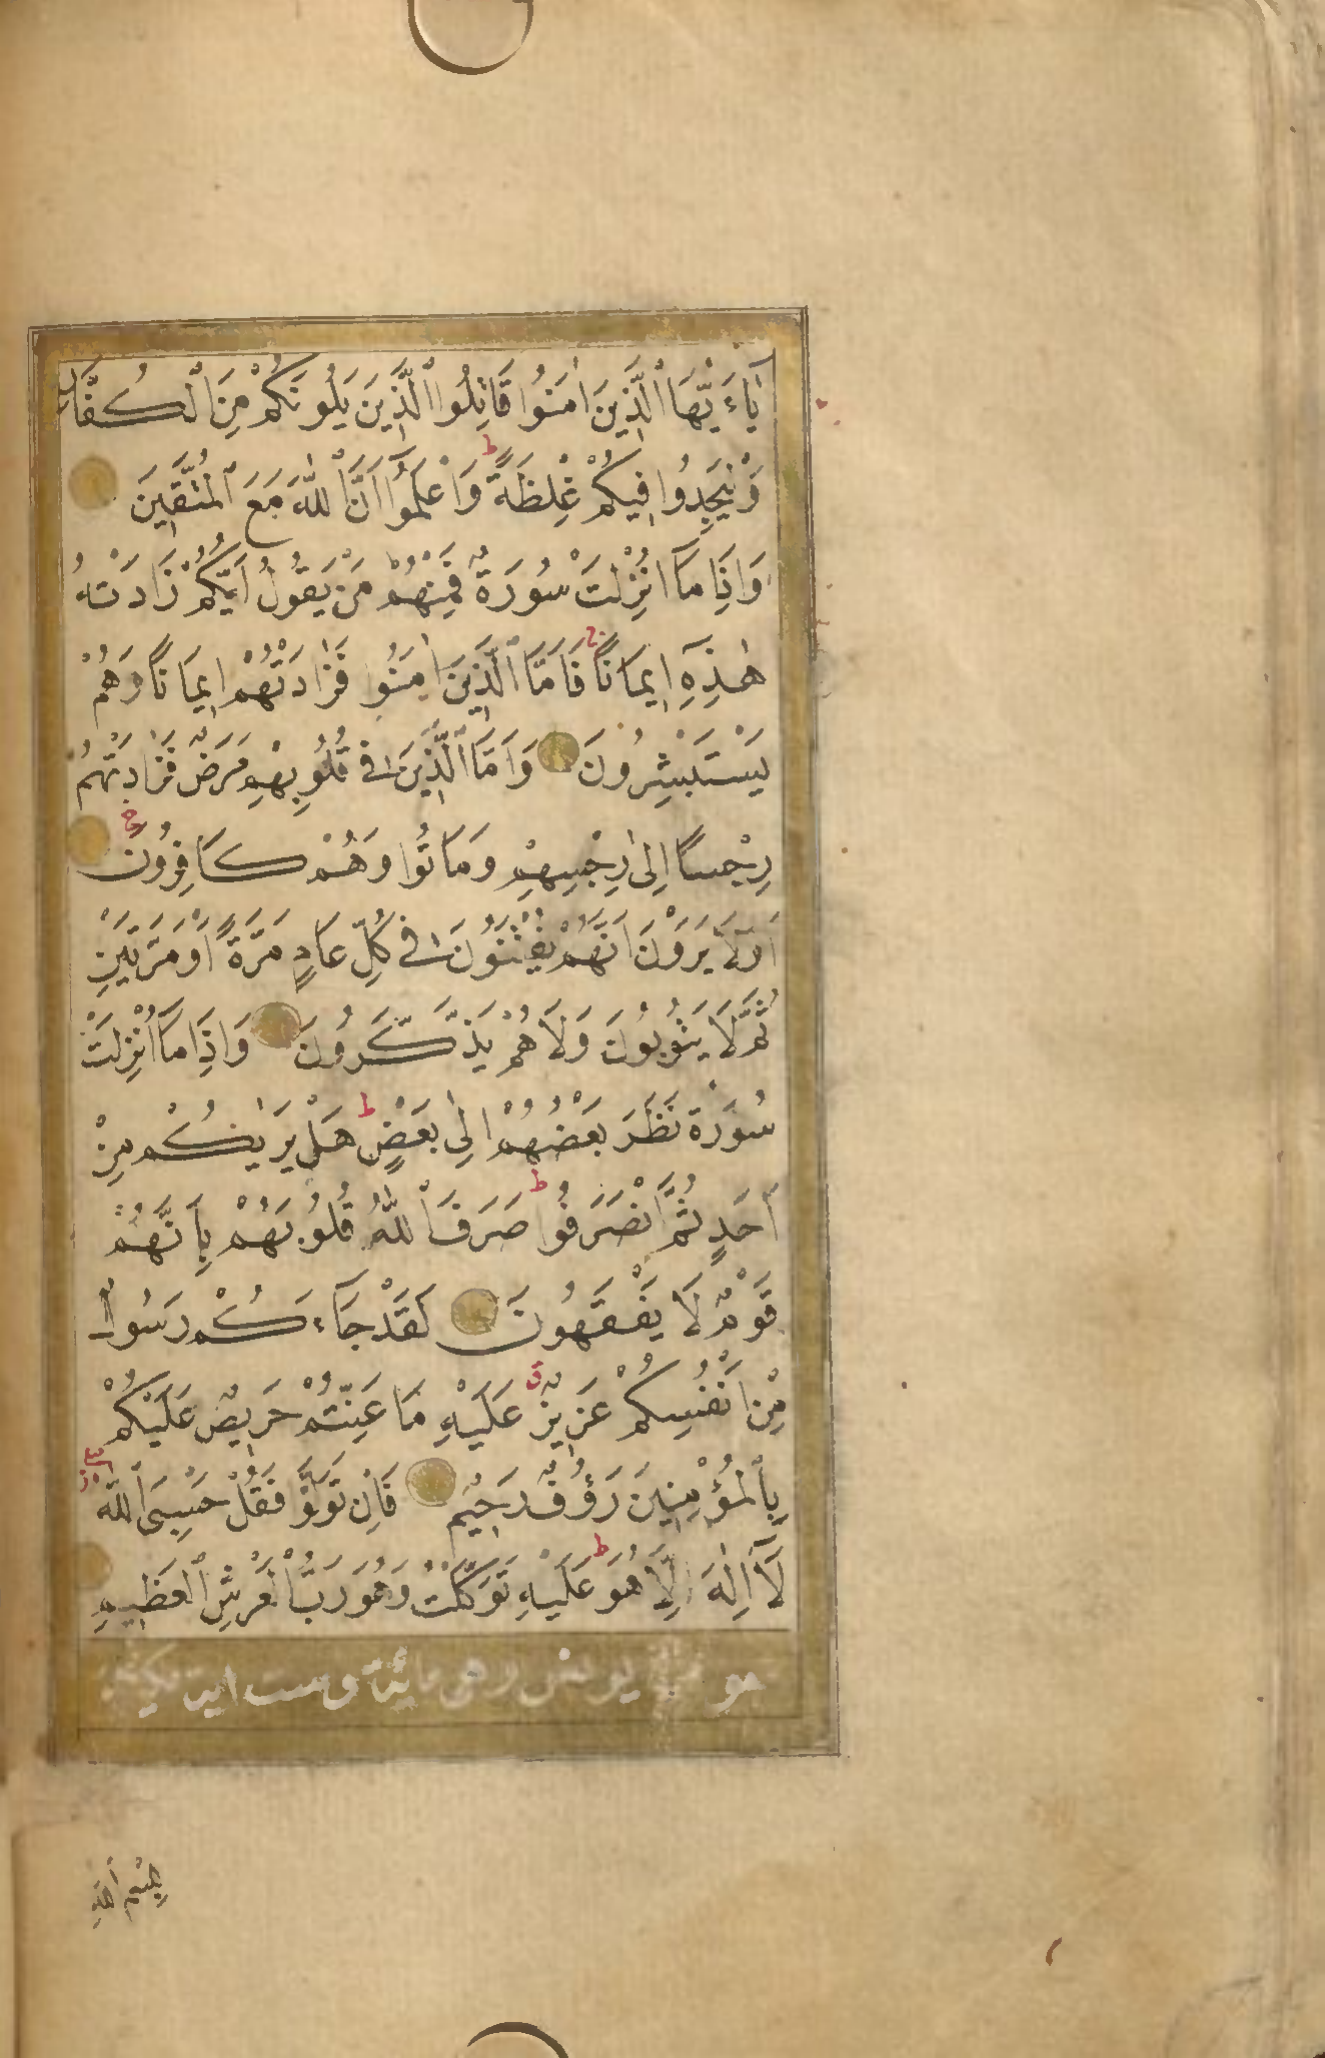 يَآءَيُّهَا ٱلَّذِينَ اٰمَنُوا قَاتِلُوا ٱلَّذِينَ يَلُونَكُمْ مِنَ ٱلْكُفَّارِ
وَلْيَجِدُوا فِيكُمْ غِلْظَةً ط وَاعْلَمُوٓا اَنَّ ٱللّٰهَ مَعَ ٱلْمُتَّقِينَ
وَاِذَا مَآ اُنْزِلَتْ سُورَةٌ فَمِنْهُمْ مَنْ يَقُولُ اَيُّكُمْ زَادَتْهُ
هٰذِهِٓ اِيمَانًا ج فَاَمَّا ٱلَّذِينَ اٰمَنُوا فَزَادَتْهُمْ اِيمَانًا وَهُمْ
يَسْتَبْشِرُونَ وَاَمَّا ٱلَّذِينَ فِى قُلُوبِهِمْ مَرَضٌ فَزَادَتْهُمْ
رِجْسًا اِلٰى رِجْسِهِمْ وَمَاتُوا وَهُمْ كَافِرُونَ
اَوَلَا يَرَوْنَ اَنَّهُمْ يُفْتَنُونَ فِى كُلِّ عَامٍ مَرَّةً اَوْ مَرَّتَيْنِ
ثُمَّ لَا يَتُوبُونَ وَلَا هُمْ يَذَّكَّرُونَ وَاِذَا مَآ اُنْزِلَتْ
سُورَةٌ نَظَرَ بَعْضُهُمْ اِلٰى بَعْضٍ ط هَلْ يَرٰيكُمْ مِنْ
اَحَدٍ ثُمَّ ٱنْصَرَفُوا ط صَرَفَ ٱللّٰهُ قُلُوبَهُمْ بِاَنَّهُمْ
قَوْمٌ لَا يَفْقَهُونَ لَقَدْ جَآءَكُمْ رَسُولٌ
مِنْ اَنْفُسِكُمْ عَزِيزٌ عَلَيْهِ مَا عَنِتُّمْ حَرِيصٌ عَلَيْكُمْ
بِٱلْمُؤْمِنِينَ رَؤُفٌ رَحِيمٌ فَاِنْ تَوَلَّوْا فَقُلْ حَسْبِىَ ٱللّٰهُ
لَآ اِلٰهَ اِلَّا هُوَ ط عَلَيْهِ تَوَكَّلْتُ وَهُوَ رَبُّ ٱلْعَرْشِ ٱلْعَظِيمِ
يونس وهي مائة وست اية مكية
بِسْمِ اللهِ